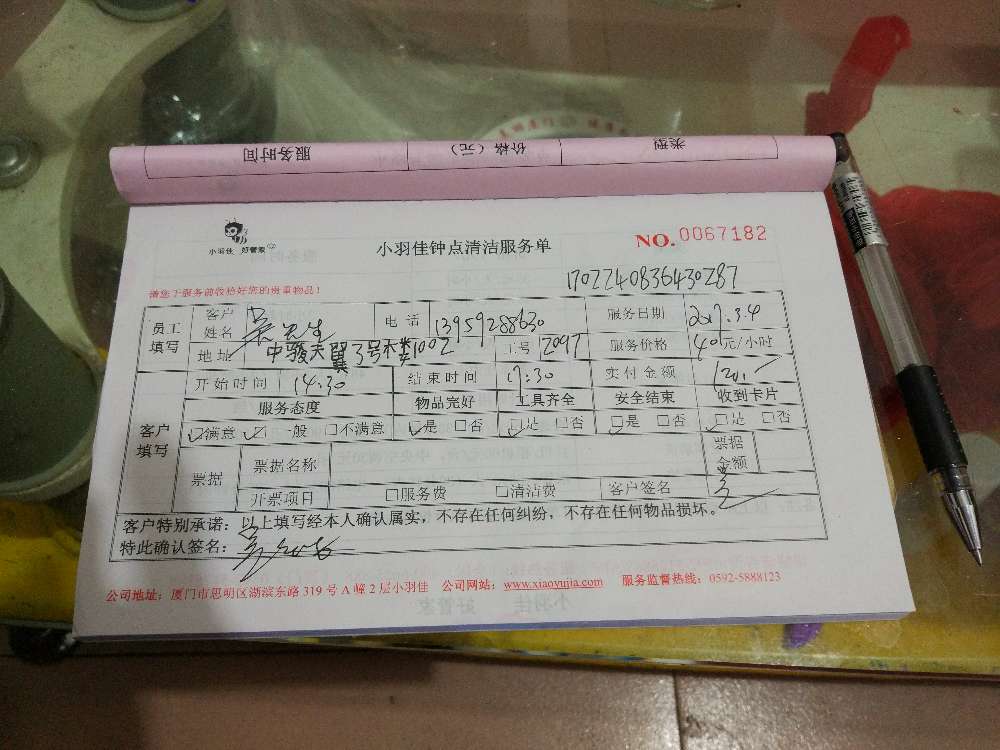 服务时间 价格（元） 类型
小羽佳 好管家
小羽佳钟点清洁服务单
NO.0067182
1702240836430287
请您于服务前收拾好您的贵重物品！
员工填写 客户姓名 吴先生 电话 13959288630 服务日期 2017.3.4
地址 中骏天翼3号楼1002 工号 2097 服务价格 40元/小时
开始时间 14:30 结束时间 17:30 实付金额 120.
客户填写 服务态度 物品完好 工具齐全 安全结束 收到卡片
☑满意 ☑一般 □不满意 ☑是 □否 ☑是 □否 ☑是 □否 ☑是 □否
票据 票据名称 票据金额
开票项目 □服务费 □清洁费 客户签名
客户特别承诺：以上填写经本人确认属实，不存在任何纠纷，不存在任何物品损坏。
特此确认签名：
公司地址：厦门市思明区湖滨东路 319 号 A 幢 2 层小羽佳 公司网站：www.xiaoyujia.com 服务监督热线：0592-5888123